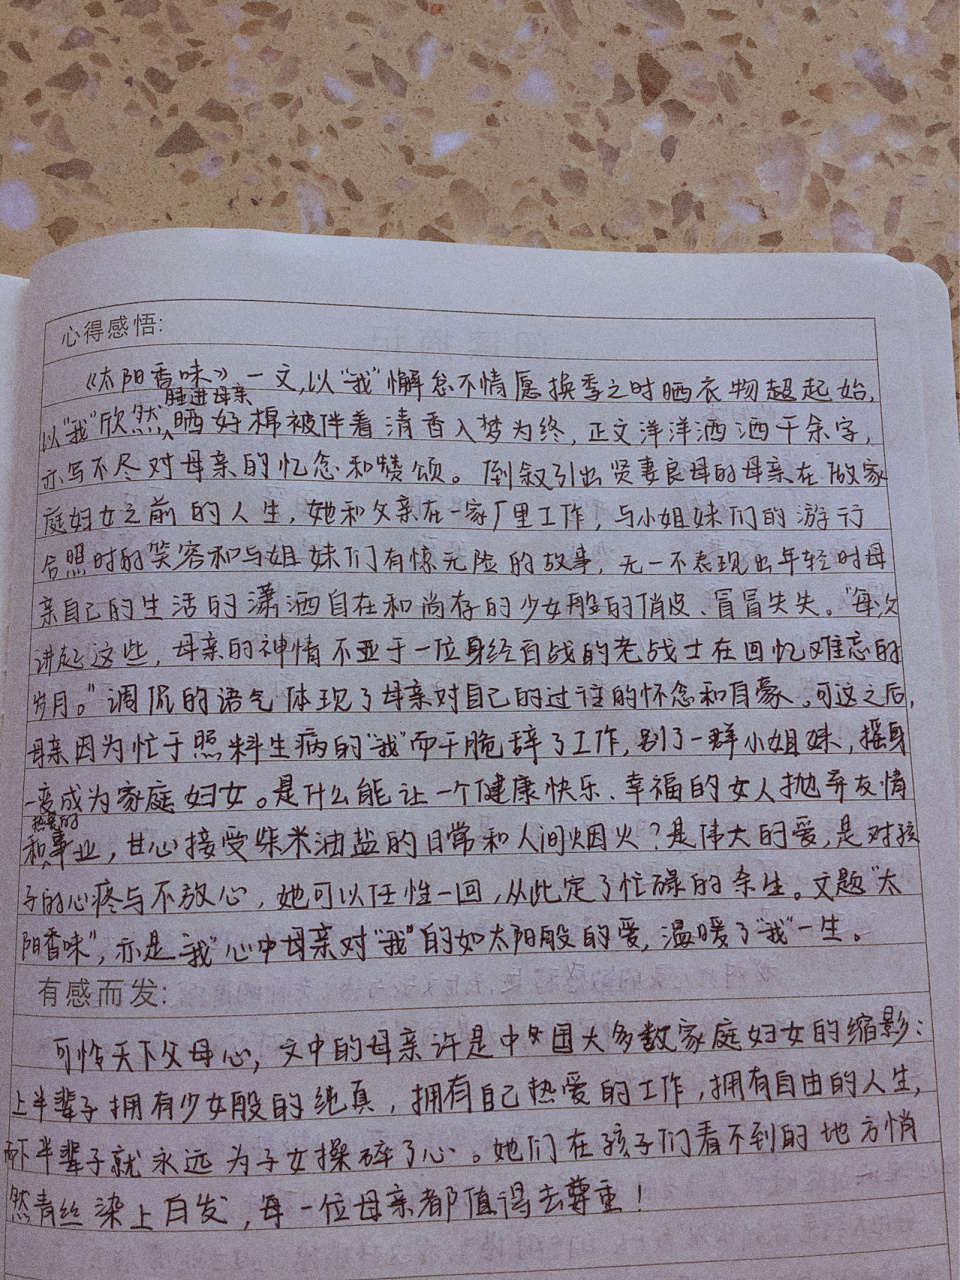 心得感悟:
《太阳香味》一文,以"我"懈怠不情愿换季之时晒衣物趄起始,
睡进母亲
以"我"欣然晒好棉被伴着清香入梦为终,正文洋洋洒洒千余字,
亦写不尽对母亲的忆念和赞颂。倒叙引出贤妻良母的母亲在做家
庭妇女之前的人生,她和父亲在一家厂里工作,与小姐妹们的游行
合照时的笑容和与姐妹们有惊无险的故事,无一不表现出年轻时母
亲自己的生活的潇洒自在和尚存的少女般的俏皮、冒冒失失。"每次
讲起这些,母亲的神情不亚于一位身经百战的老战士在回忆难忘的
岁月。"调侃的语气体现了母亲对自己的过往的怀念和自豪。可这之后,
母亲因为忙于照料生病的"我"而干脆辞了工作,别了一群小姐妹,摇身
一变成为家庭妇女。是什么能让一个健康快乐、幸福的女人抛弃友情
热爱的
和事业,甘心接受柴米油盐的日常和人间烟火?是伟大的爱,是对孩
子的心疼与不放心,她可以任性一回,从此定了忙碌的余生。文题"太
阳香味",亦是"我"心中母亲对"我"的如太阳般的爱,温暖了"我"一生。
有感而发:
可怜天下父母心,文中的母亲许是中国大多数家庭妇女的缩影:
上半辈子拥有少女般的纯真,拥有自己热爱的工作,拥有自由的人生,
而下半辈子就永远为子女操碎了心。她们在孩子们看不到的地方悄
然青丝染上白发,每一位母亲都值得去尊重!